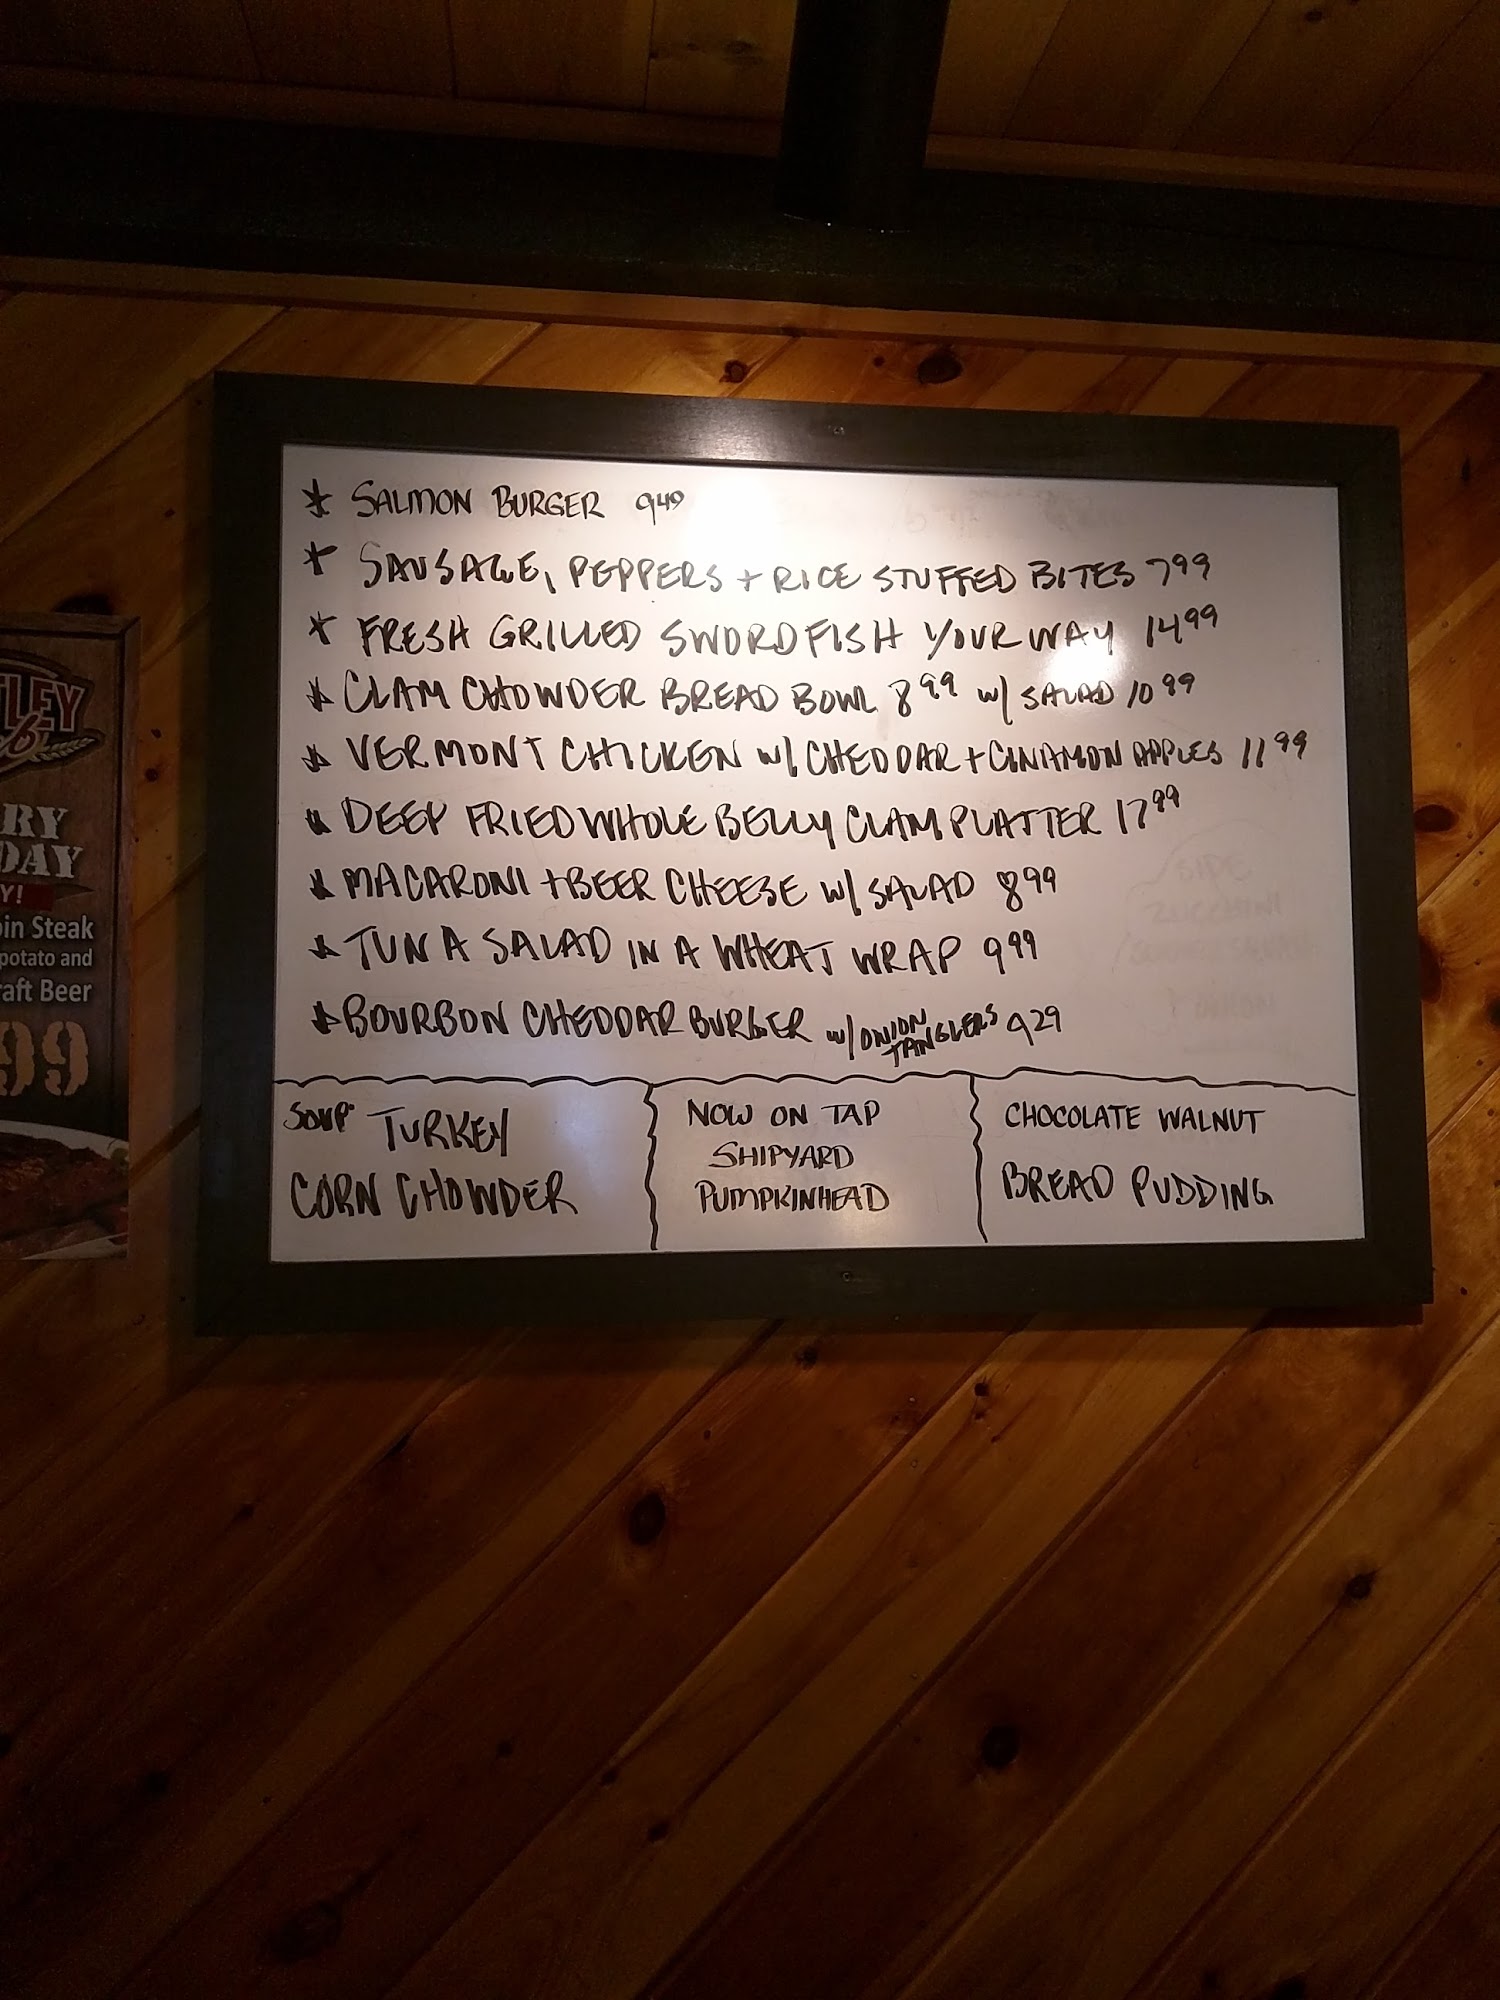 * SALMON BURGER 9⁴⁹
* SAUSAGE, PEPPERS + RICE STUFFED BITES 7⁹⁹
* FRESH GRILLED SWORDFISH YOUR WAY 14⁹⁹
* CLAM CHOWDER BREAD BOWL 8⁹⁹ w/ SALAD 10⁹⁹
* VERMONT CHICKEN w/ CHEDDAR + CINAMON APPLES 11⁹⁹
* DEEP FRIED WHOLE BELLY CLAM PLATTER 17⁹⁹
* MACARONI + BEER CHEESE w/ SALAD 8⁹⁹
* TUNA SALAD IN A WHEAT WRAP 9⁹⁹
* BOURBON CHEDDAR BURGER w/ ONION TANGLERS 9²⁹
SOUP: TURKEY
CORN CHOWDER
NOW ON TAP
SHIPYARD
PUMPKINHEAD
CHOCOLATE WALNUT
BREAD PUDDING
TLEY
b
RY
DAY
Y!
oin Steak
potato and
raft Beer
99